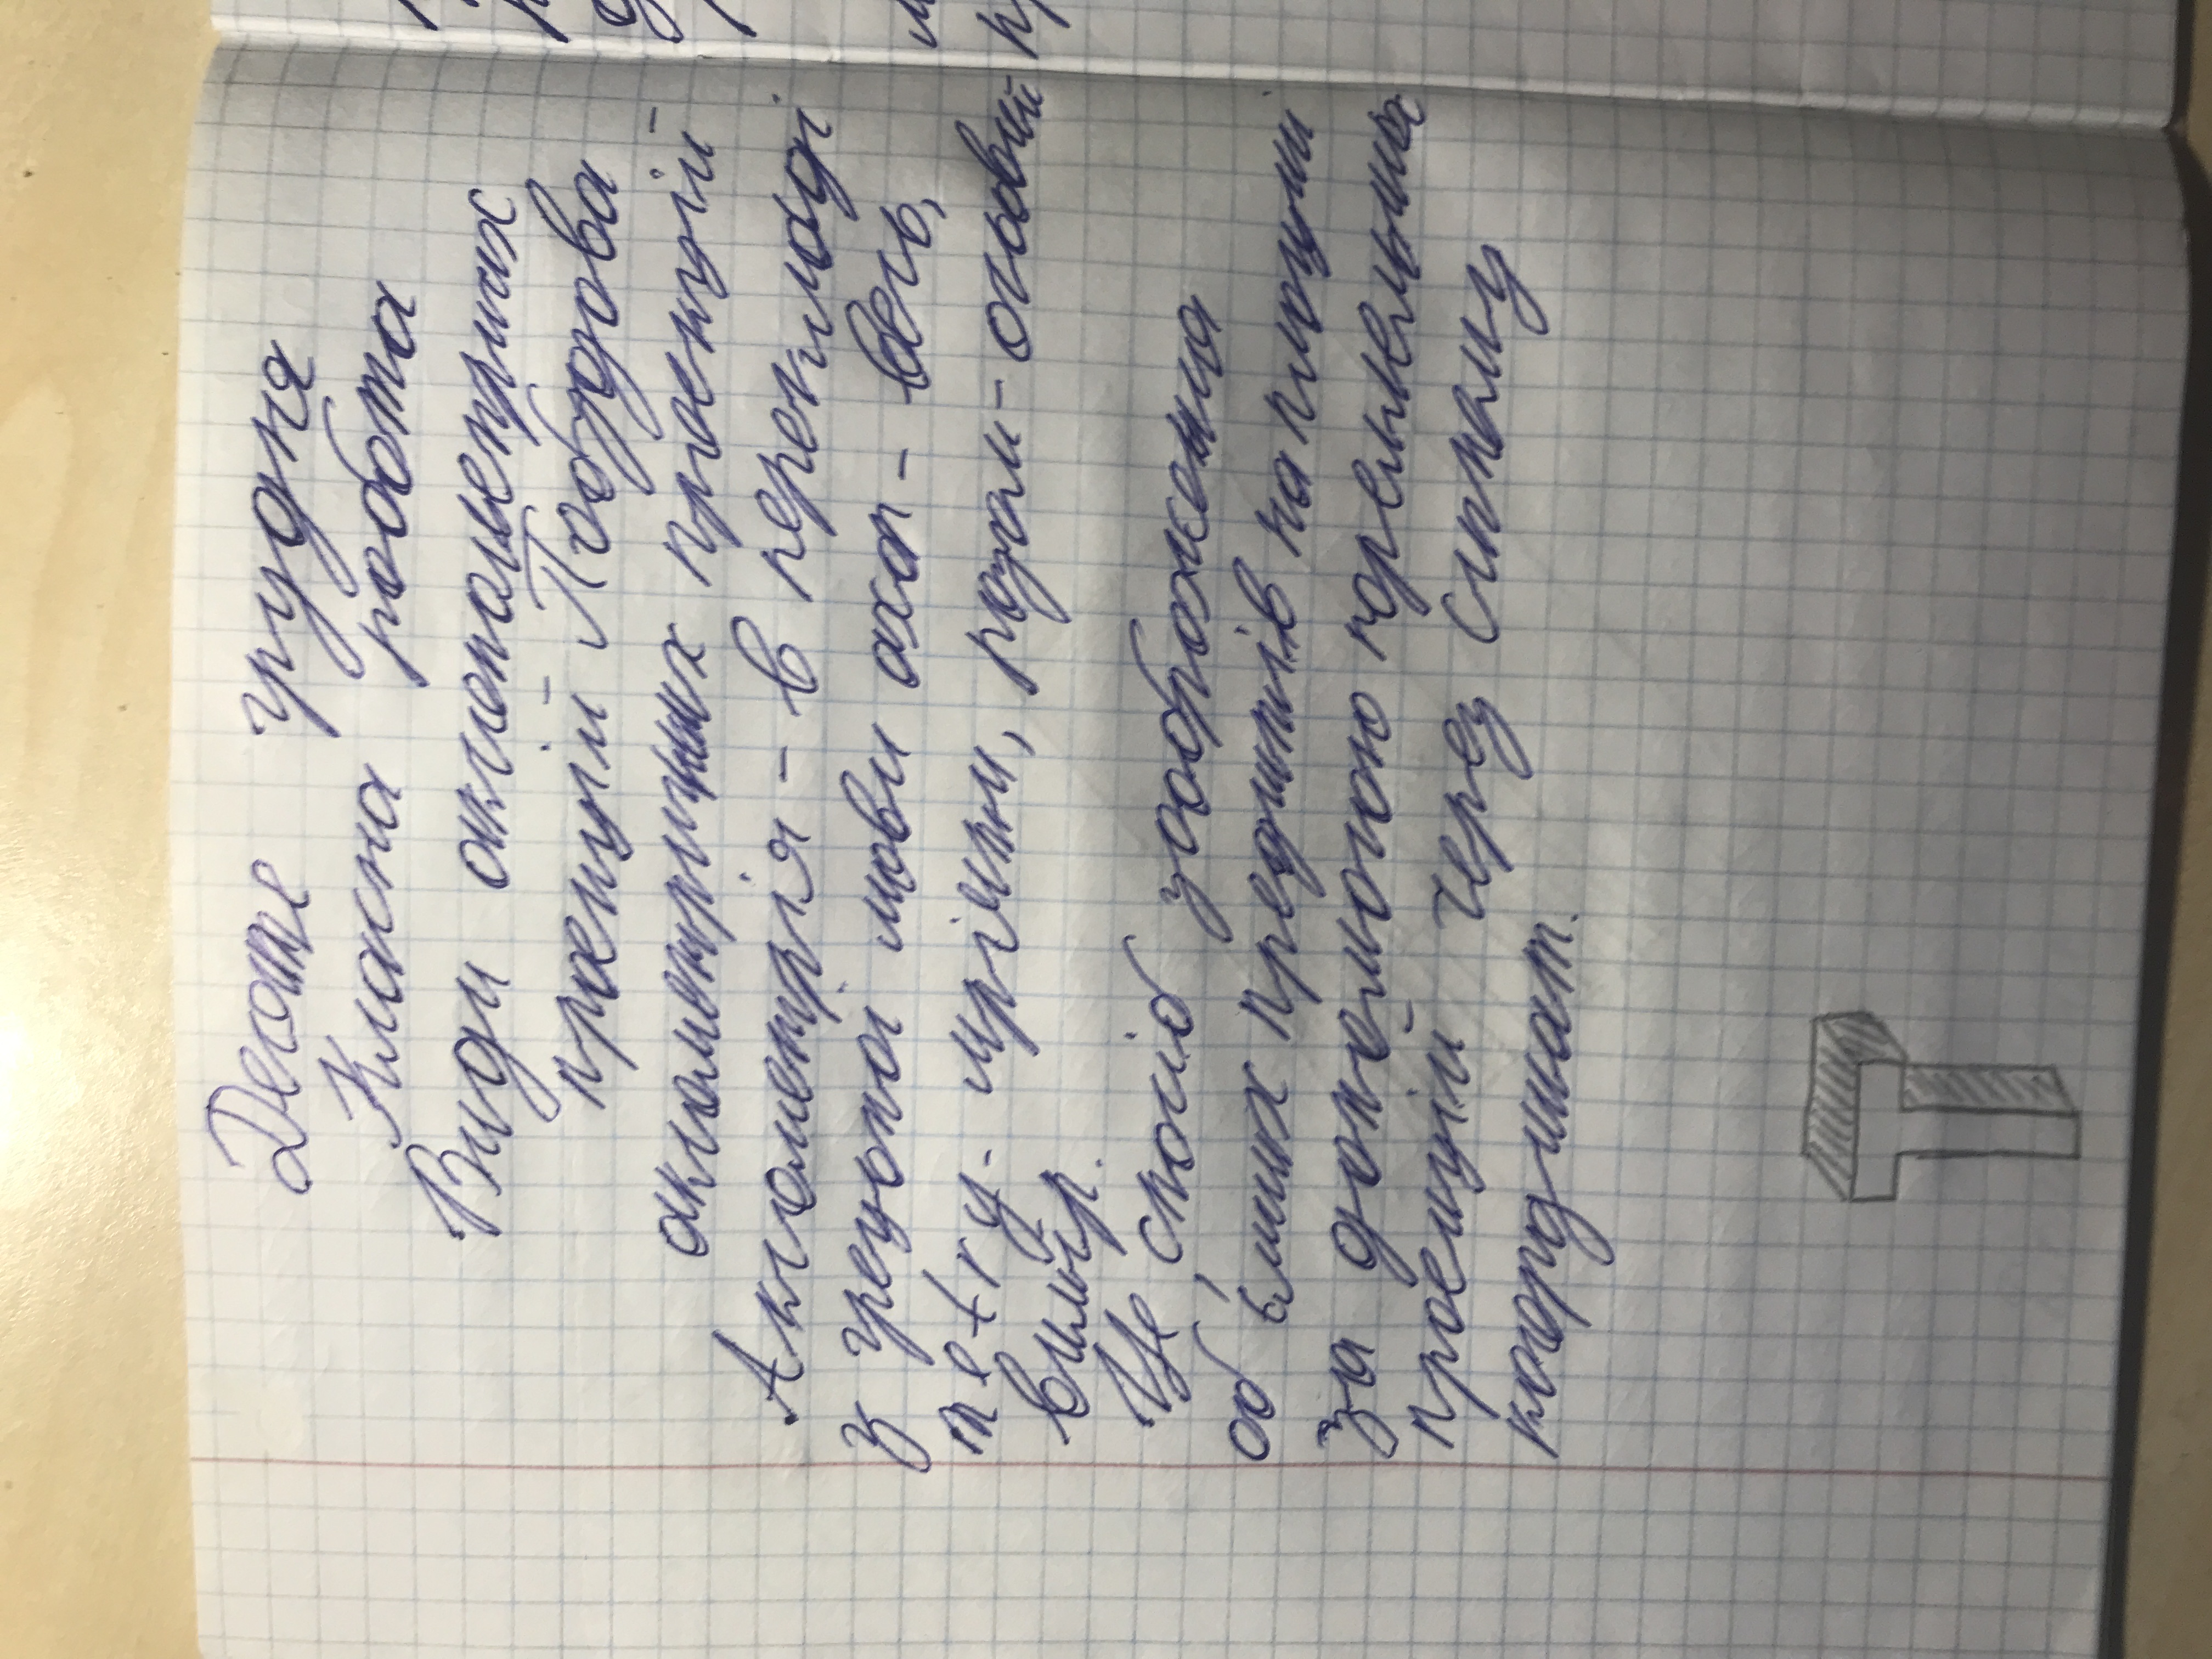 Десяте грудня
Класна робота
Види аксонометричних
проекцій Побудова
аксонометричних проекцій
Аксонометрія - в перекладі
з грецької мови ахоп - вего,
metry - мріями, розам - осьовий
вимір.
Це спосіб зображення
об'ємних предметів на площині
за допомогою паралельних
проекцій через систему
координат.